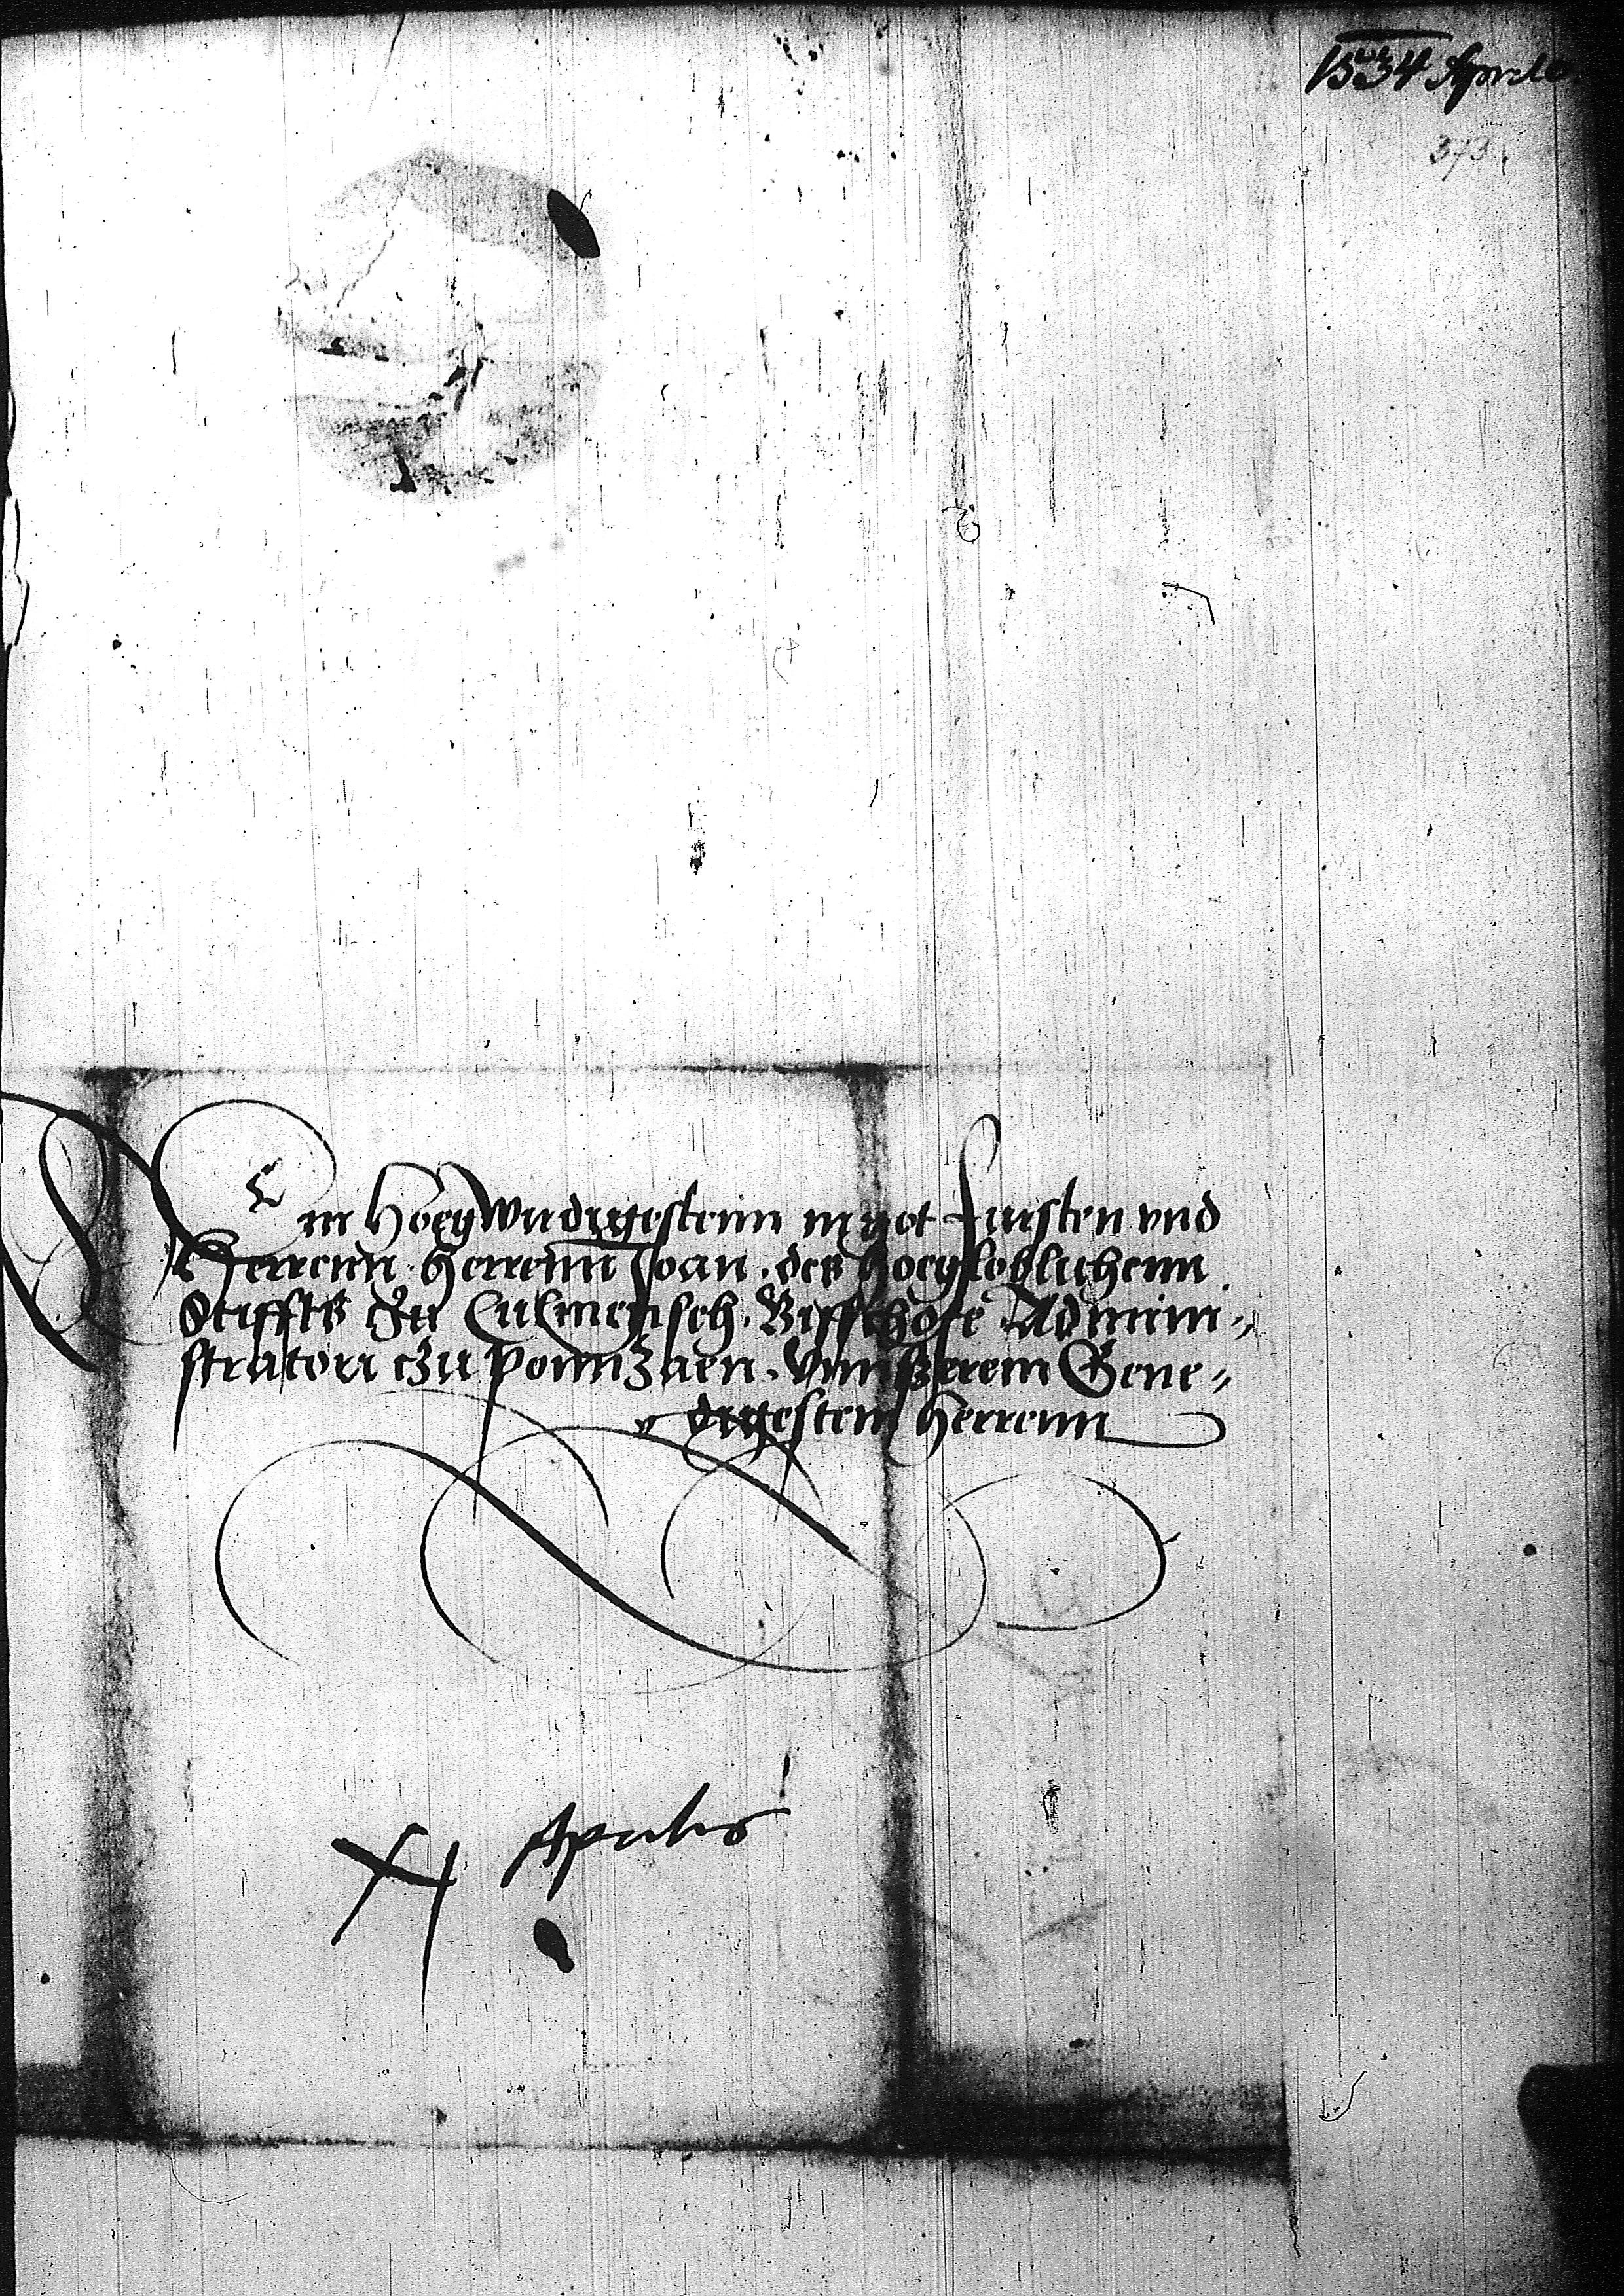 1534 Aprilis
373
Dem Hoegwirdigestenn in got fursten vnd
Herrenn. Herrenn Joan. des hoegloblichenn
Stiffts Zu Culmensch. Bisschofe. Admini=
stratorn czu Pomnzaen. Vnnszerem Gene=
digestenn Herrenn
XI Aprilis